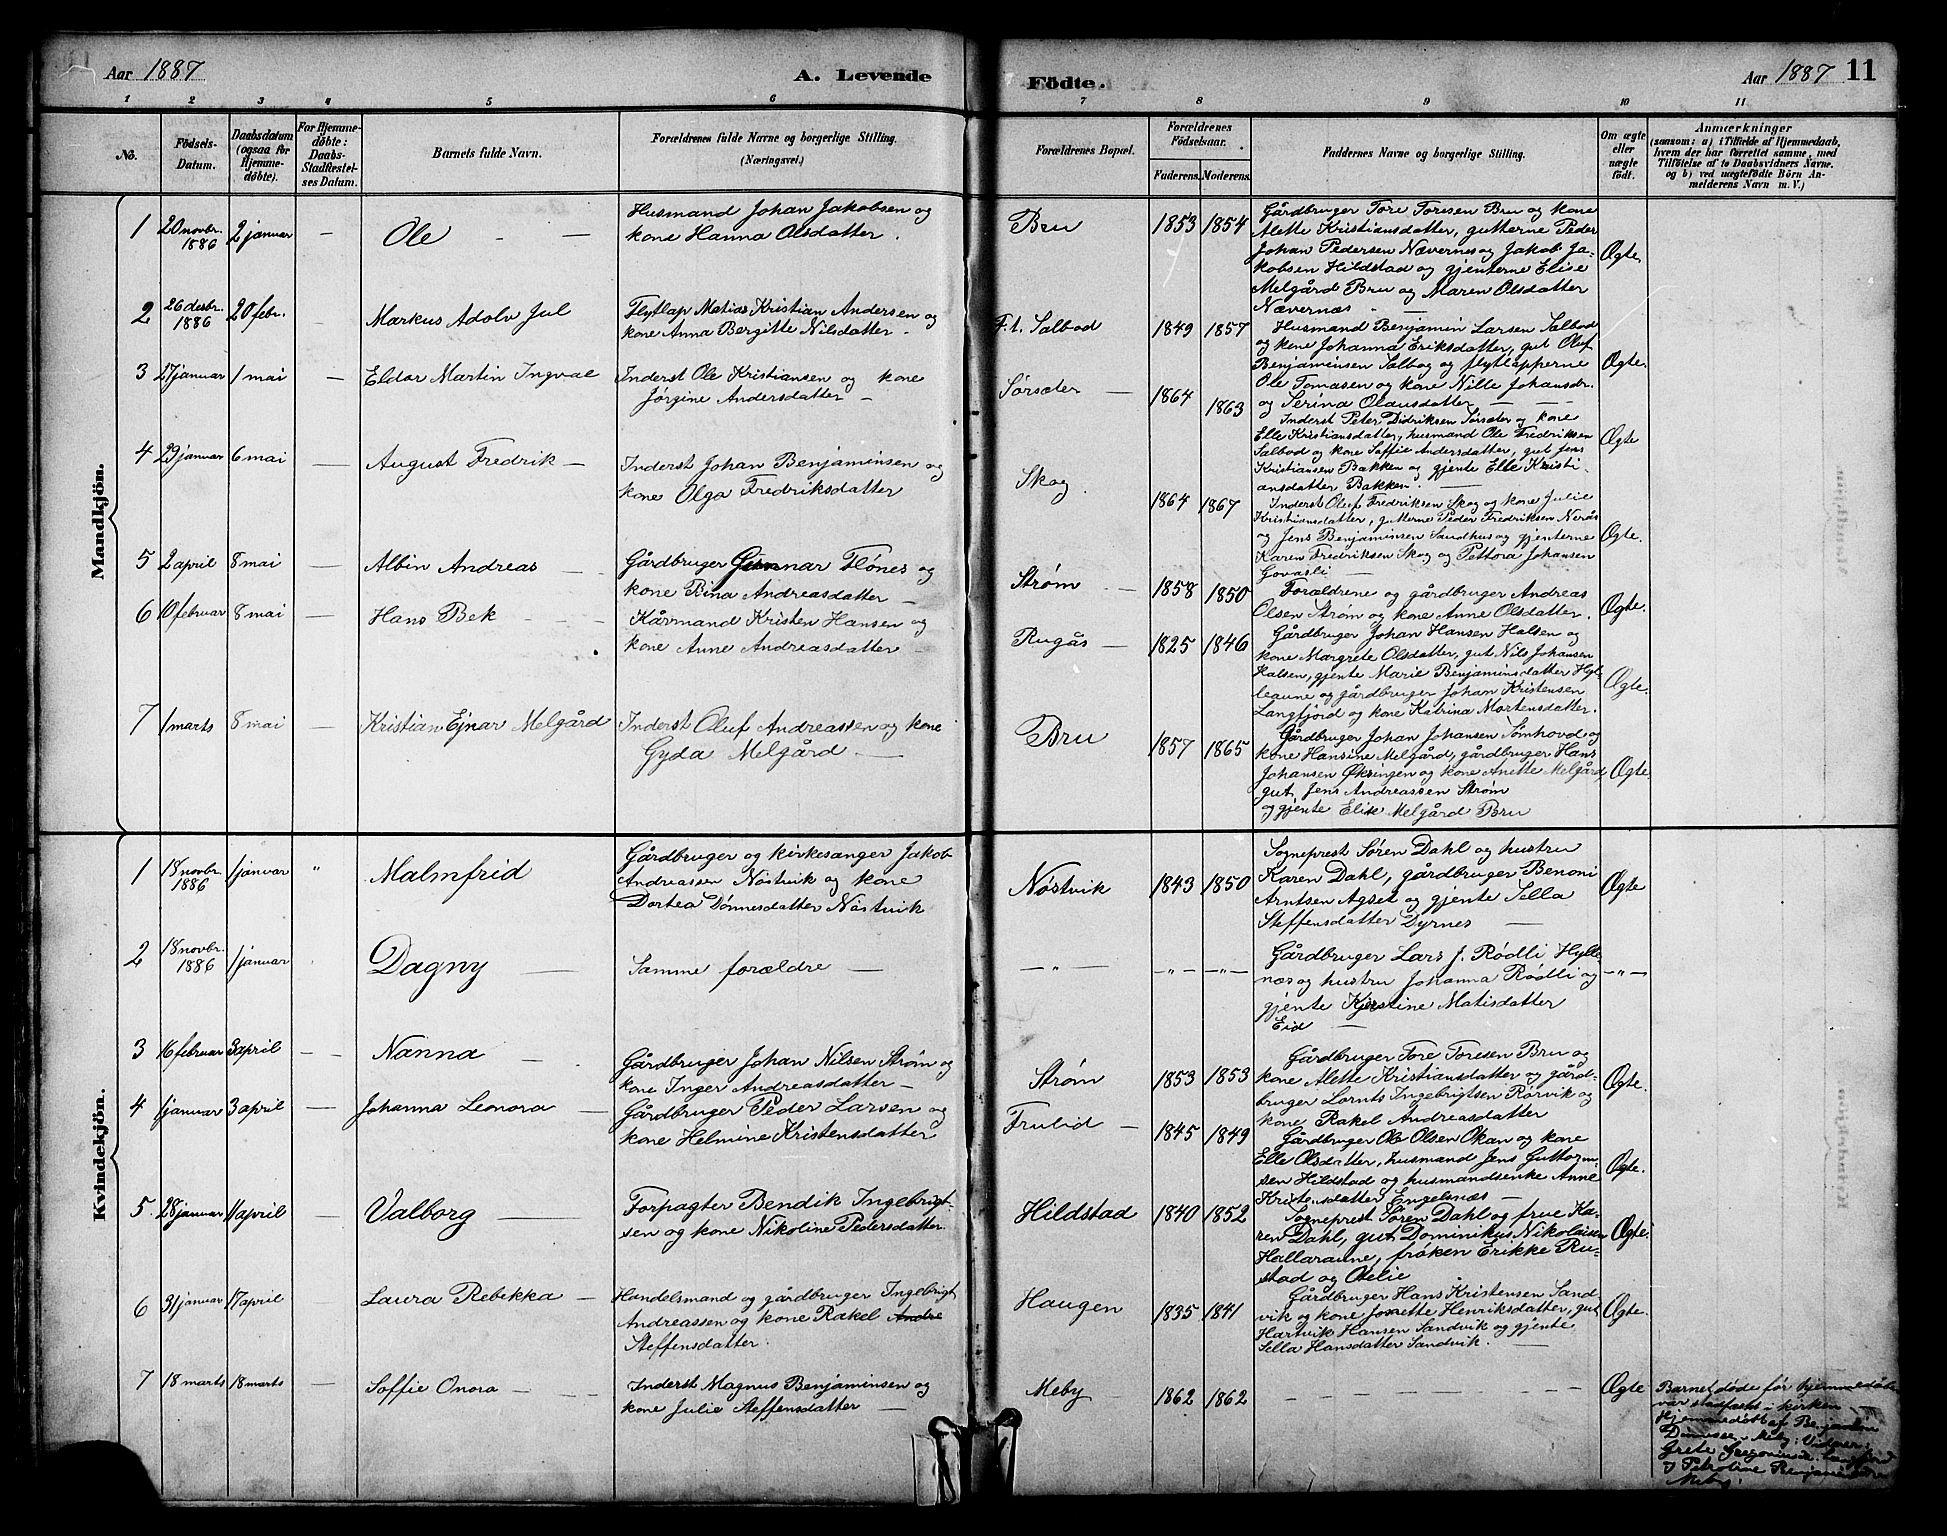 Aar 1887
A. Levende
Födte.
Aar 1887 11
1 2 3 4 5 6 7 8 9 10 11
No.
Födsels-
Datum.
Daabsdatum
(ogsaa for
Hjemme-
döbte).
For Hjemme-
döbte:
Daabs-
Stadfæstel-
ses Datum.
Barnets fulde Navn.
Forældrenes fulde Navne og borgerlige Stilling.
(Næringsvei.)
Forældrenes Bopæl.
Forældrenes
Födselsaar.
Faderens. Moderens.
Faddernes Navne og borgerlige Stilling.
Om ægte
eller
uægte
födt.
Anmærkninger
(saasom: a) i Tilfælde af Hjemmedaab,
hvem der har forrettet samme, med
Tilföielse af to Daabsvidners Navne.
og b) ved uægtefödte Börn An-
melderens Navn m. V.)
Mandkjön.
1 20 novbr. 1886 2 januar — Ole — —
Husmand Johan Jakobsen og
kone Hanna Olsdatter.
Bru 1853 1854
Gårdbruger Tore Toresen Bru og kone
Alette Kristiansdatter, gutterne Peder
Johan Pedersen Nævernes og Jakob Ja-
kobsen Hildstad og gjenterne Elise
Melgård Bru og Maren Olsdatter
Nævernæs —
Ægte
2 26 desbr. 1886 20 febr. Markus Adolv Jul
Flytlap Matias Kristian Andersen og
kone Anna Bergitte Nilsdatter
F.t. Salbod 1849 1857
Husmand Benjamin Larsen Salbod
og kone Johanna Eriksdatter, gut Oluf
Benjaminsen Salbog og flytlapperne
Ole Tomasen og kone Nille Johansdr.
og Serina Olausdatter — —
Ægte.
3 27 januar 1 mai — Eldor Martin Ingval
Inderst Ole Kristiansen og kone
Jørgine Andersdatter —
Sørsæter — 1864 1863
Inderst Peter Didriksen Sørsæter og kone
Elle Kristiansdatter, husmand Ole Fredriksen
Salbod og kone Saffie Andersdatter, gut Jens
Kristiansen Bakken og gjente Elle Kristi-
ansdatter Bakken. —
Ægte
4 29 januar 6 mai — August Fredrik —
Inderst Johan Benjaminsen og
kone Olga Fredriksdatter
Skog 1864 1867
Inderst Oluf Fredriksen Skog og kone Julie
Kristiansdatter, gutterne Peder Fredriksen Nerås
og Jens Benjaminsen Sandhus og gjenterne
Karen Fredriksen Skog og Pettora Johansen
Govasli —
Ægte.
5 2 april 8 mai — Albin Andreas —
Gårdbruger Gunnar Flønes og
kone Bina Andreasdatter —
Strøm — 1858 1850
Forældrene og gårdbruger Andreas
Olsen Strøm og kone Anne Olsdatter.
Ægte.
6 10 februar 8 mai — Hans Bek — — —
Kårmand Kristen Hansen og
kone Anne Andreasdatter —
Rugås — 1825 1846
Gårdbruger Johan Hansen Halsen og
kone Margrete Olsdatter, gut Nils Johansen
Halsen, gjente Marie Benjaminsdatter Hyl-
leaune og gårdbruger Johan Kristensen
Langfjord og kone Katrina Mortensdatter.
Ægte.
7 1 marts 8 mai — Kristian Ejnar Melgård
Inderst Oluf Andreassen og kone
Gyda Melgård —
Bru 1857 1865
Gårdbruger Johan Johansen Sømhovd og
kone Hansine Melgård, gårdbruger Hans
Johansen Øksingen og kone Anette Melgård,
gut Jens Andreassen Strøm
og gjente Elise Melgård Bru
Ægte.
Kvindekjön.
1 18 novbr. 1886 1 januar " Malmfrid
Gårdbruger og kirkesanger Jakob
Andreassen Nøstvik og kone
Dortea Dønnesdatter Nøstvik
Nøstvik 1843 1850
Sogneprest Søren Dahl og hustru
Karen Dahl, gårdbruger Benoni
Arntsen Agset og gjente Sella
Steffensdatter Dyrnes —
Ægte
2 18 novbr. 1886 1 januar Dagny —
Samme forældre —
— " — — " — — " —
Gårdbruger Lars J. Rødli Hylle-
næs og hustru Johanna Rødli og
gjente Kjerstine Matisdatter
Eid —
— " —
3 16 februar 3 april — — Nanna —
Gårdbruger Johan Nilsen Strøm og
kone Inger Andreasdatter —
Strøm 1853 1853
Gårdbruger Tore Toresen Bru og
kone Alette Kristiansdatter og gård-
bruger Lornts Ingebrigtsen Rørvik og
kone Rakel Andreasdatter
Ægte.
4 1 januar 3 april — Johanna Leonora —
Gårdbruger Peder Larsen og
kone Helmine Kristensdatter
Frulid — 1845 1849
Gårdbruger Ole Olsen Okan og kone
Elle Olsdatter, husmand Jens Guttorm-
sen Hildstad og husmandsenke Anne
Kristensdatter Engelsnæs —
Ægte.
5. 28 januar 11 april — Valborg —
Forpagter Bendik Ingebrigt-
sen og kone Nikoline Pedersdatter
Hildstad 1840 1852
Sogneprest Søren Dahl og frue Ka-
ren Dahl, gut Dominikus Nikolaisen
Hallaraune, frøken Erikke Ru-
stad og Otelie
Ægte.
6 31 januar 17 april Laura Rebekka —
Handelsmand og gårdbruger Ingebrigt
Andreassen og kone Rakel Andre
Steffensdatter.
Haugen 1835 1841
Gårdbruger Hans Kristensen Sand-
vik og kone Jonette Henriksdatter, gut
Hartvik Hansen Sandvik og gjente
Sella Hansdatter Sandvik. —
Ægte
7 18 marts 18 marts — Soffie Onora — —
Inderst Magnus Benjaminsen og
kone Julie Steffensdatter —
Meby 1862 1862 — — — — — — Ægte
Barnet døde før hjemmedåben
var stadfæst i kirken.
Hjemmedøbt af Benjamin
Dønnesen Meby; Vidner:
Grete
Petroline Benjaminsdr.
Meby.